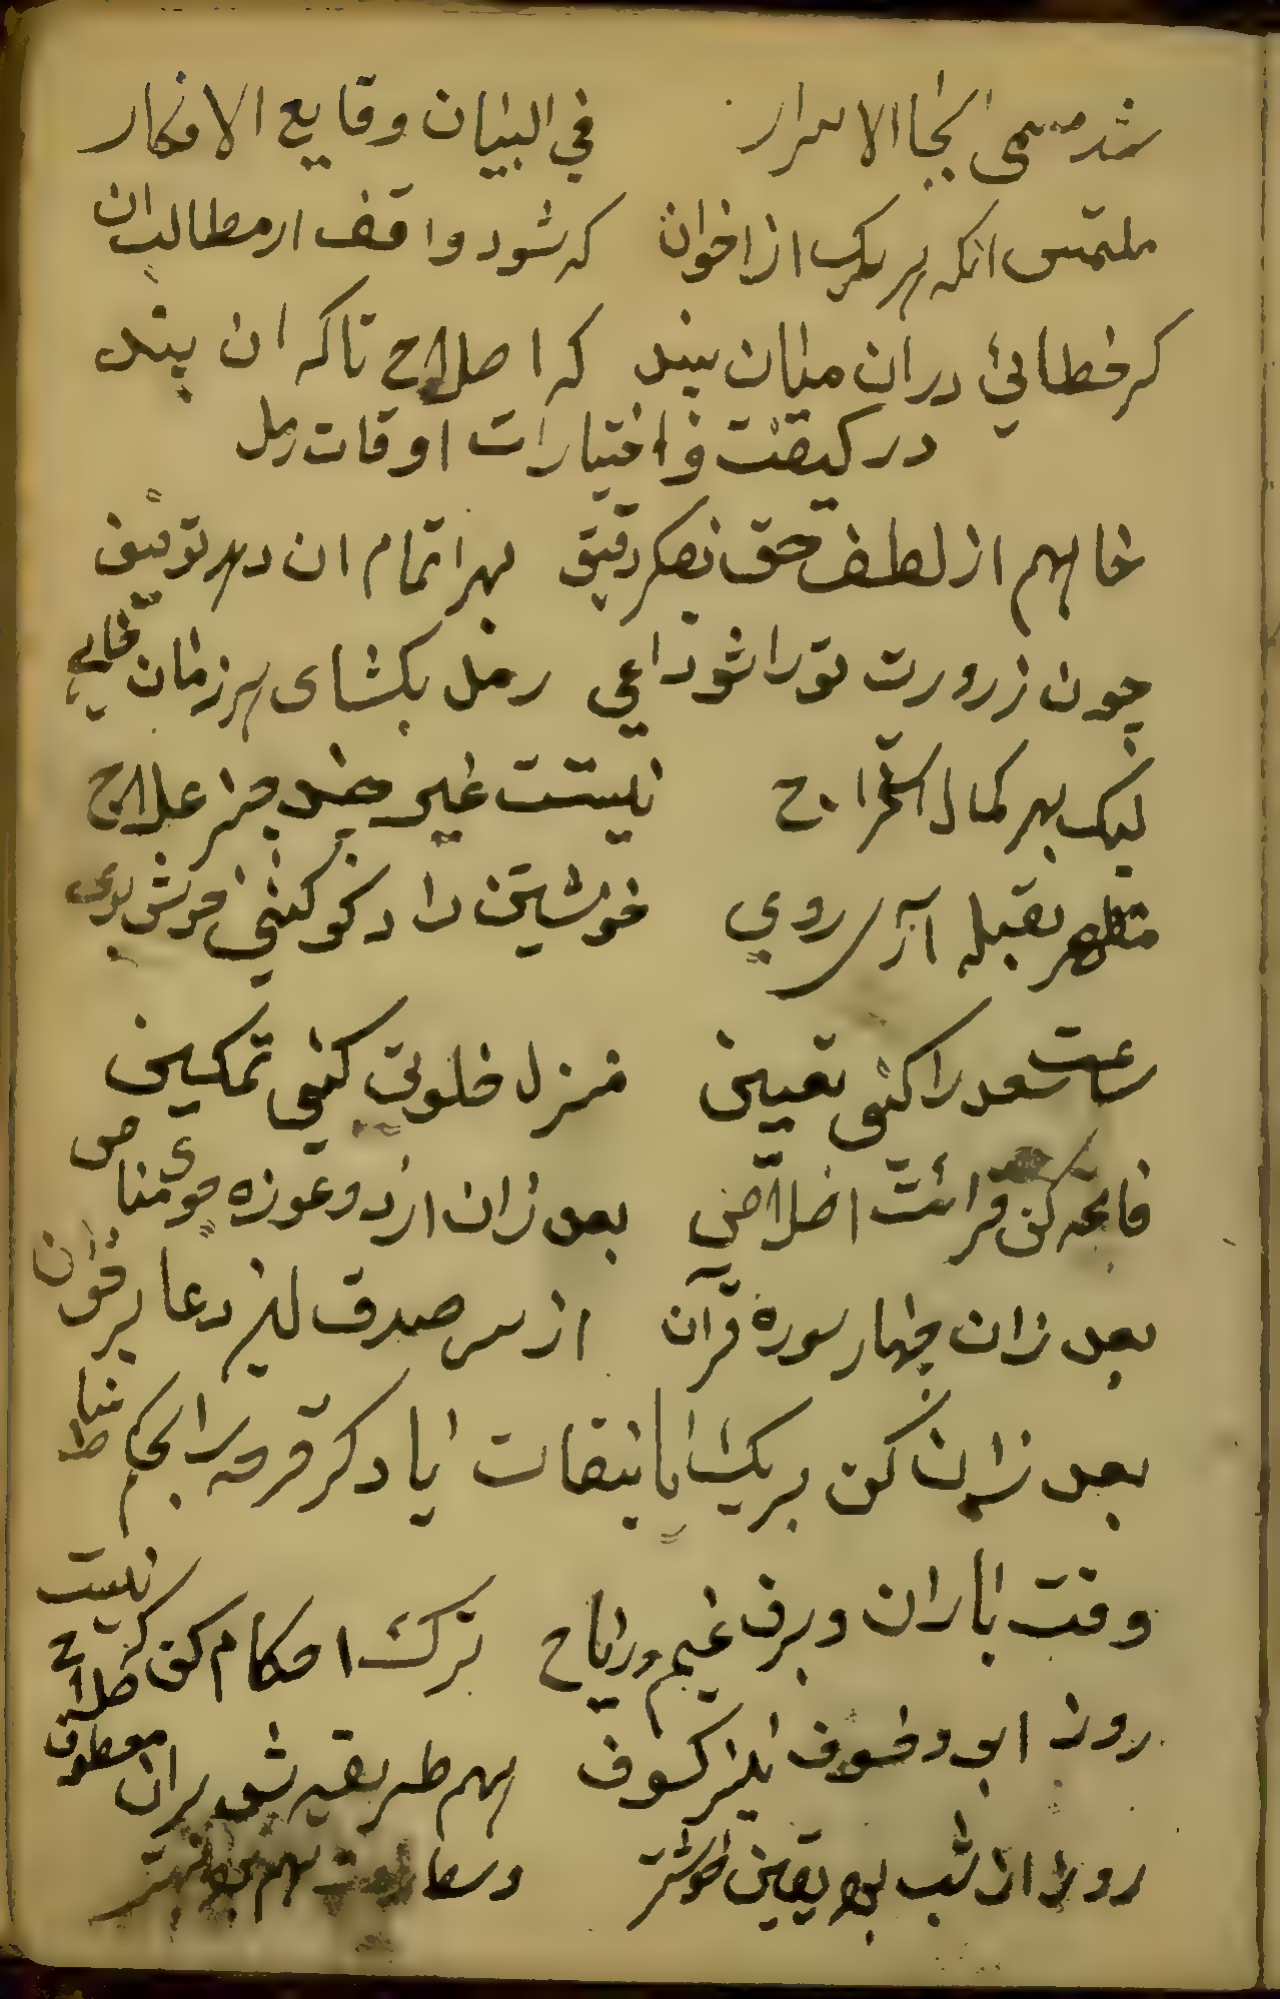 شد مسمی الاسرار في البيان وقايع الافكار
ملتمس انكه هر يک از اخوان که شود واقف از مطالب ان
کر خطائي در ان ميان بيند که اصلاح تا که ان بيند
در کيفيت و اختيارات اوقات رمل
خاهم از لطف حق بفکر دقيق بهر اتمام ان دهد توفيق
چون زرورت تو را شود داعي رمل بکشای هر زمان
ليک بهر کمال استخراج نيست غير جز علاج
متطهر بقبله آر روي خويشتن را دکر کني خوش بوی
ساعت سعد را کنی تعيين منزل خلوتي کني تمکين
فاتحه کن قرائت اخلاص بعد زان از دو عوزه جوی مناص
بعد زان چهار سورة قرآن از سر صدق نيز دعا بر خوان
بعد زان کن بريک يا نيقات ياد کر قرعه را بحکم
وقت باران و برف غيم و رياح ترک احکام کن کز نيست صلاح
روز ابر و خسوف نيز کسوف بهم طريقه شد بر ان معطوف
روز از شب بود يقين خوشتر وسط هم بود بهتر